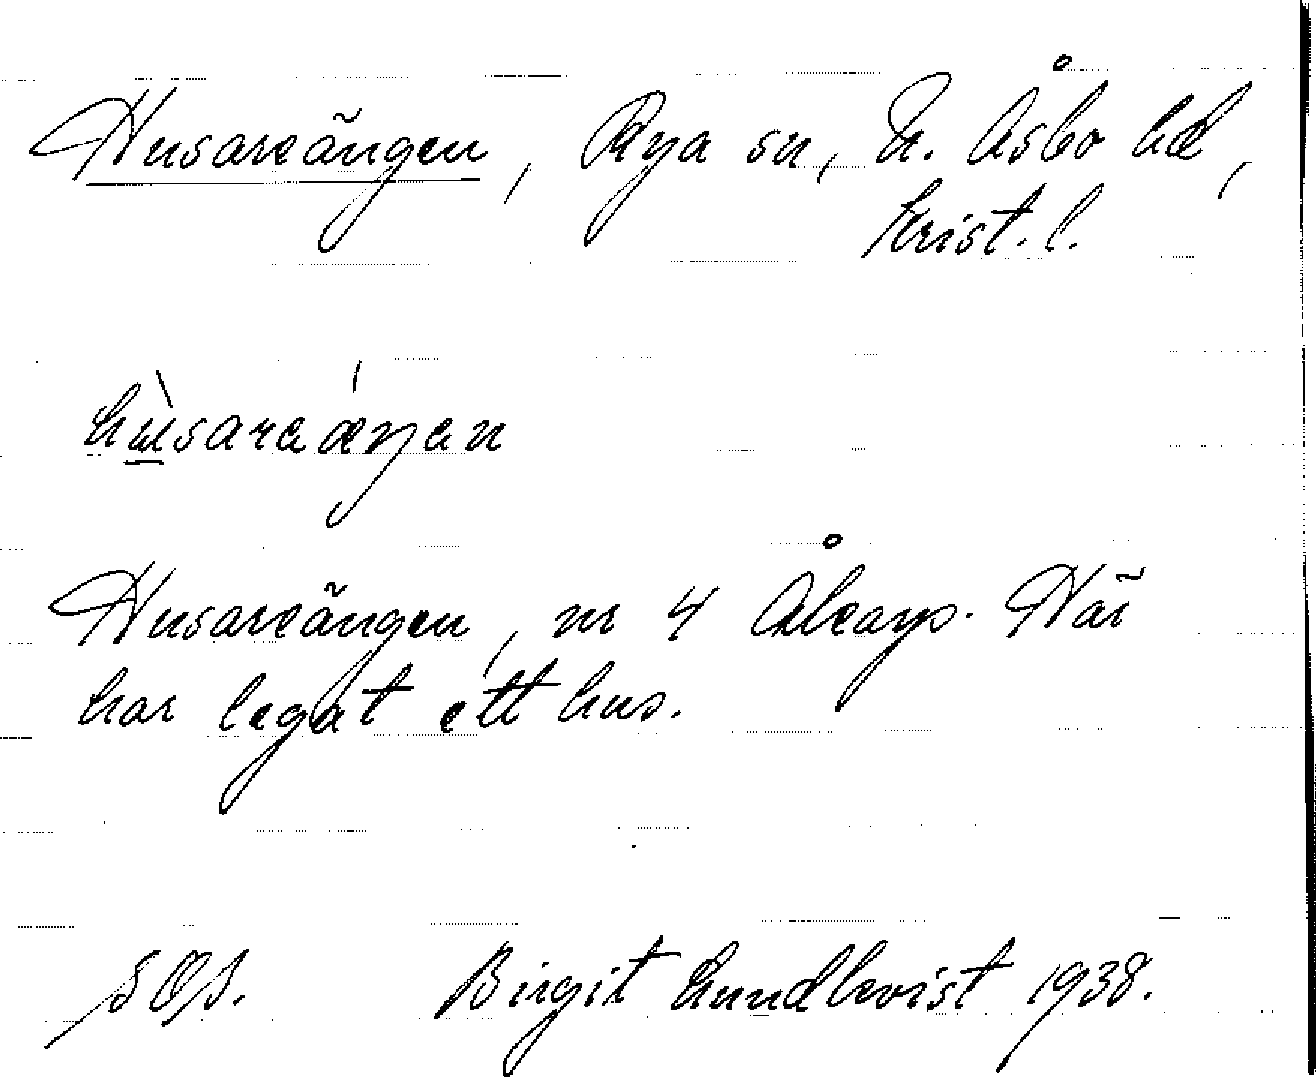 Husareängen, Rya sn, N. Åsbo hd,
Krist. l.
hùsaraæŋan
Husareängen, nr 4 Älvarp. Här
har legat ett hus.
SOS. Birgit Lundkvist 1938.